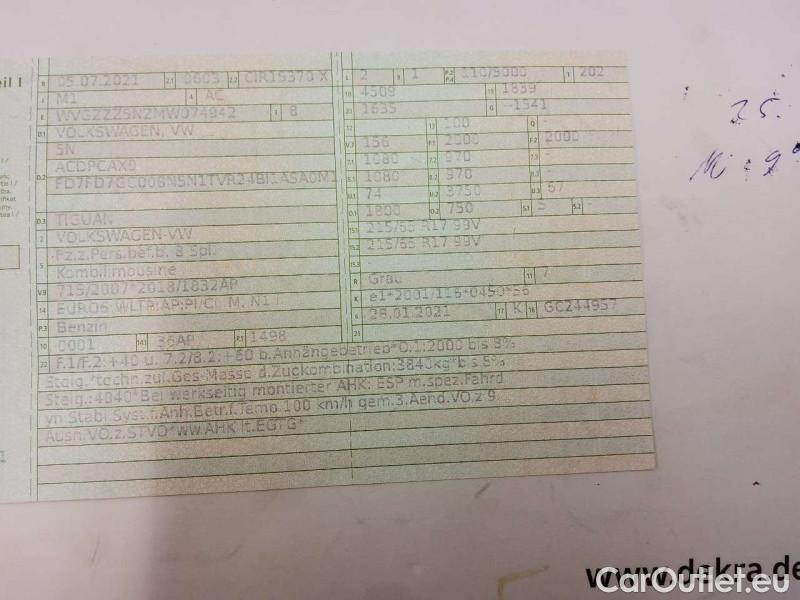 eil I
B 05.07.2021 2.1 0603 2.2 CIR15370 X
J M1 4 AC
E WVGZZZ5NZMW074942 3 8
D.1 VOLKSWAGEN, VW
5N
D.2 ACDPCAX0
FD7FD7GC008NSN1TVR24BI1ASA0M1
D.3 TIGUAN
2 VOLKSWAGEN-VW
5 Fz.z.Pers.bef.b. 8 Spl.
Kombilimousine
V.9 715/2007*2018/1832AP
14 EURO6 WLTP:AP:PI/CI, M, N1 I
P.3 Benzin
10 0001 14.1 36AP P.1 1498
L 2 9 1 P.2 P.4 110/5000 T 202
18 4509 19 1839
20 1635 G -1541
12 - 13 100 Q -
V.7 156 F.1 2000 F.2 2000
7.1 1080 7.2 970 7.3 -
8.1 1080 8.2 970 8.3 -
U.1 74 U.2 3750 U.3 67
O.1 1800 O.2 750 S.1 5 S.2 -
15.1 215/65 R17 99V
15.2 215/65 R17 99V
15.3 -
R Grau 11 7
K e1*2001/116*0450*56
6 28.01.2021 17 K 16 GC244957
21
22 F.1/F.2: +40 u. 7.2/8.2: +60 b.Anhängebetrieb*O.1:2000 bis 8%
Steig.*techn.zul.Ges-Masse d.Zuckombination:3840kg*bis 8%
Steig.:4040*Bei werkseitig montierter AHK: ESP m.spez.Fahrd
yn Stabi Syst.f.Anh.Betr.f.Temo 100 km/h gem.3.Aend.VO.z 9
Ausn.VO.z.STVO*ww.AHK lt.EGTG*
25.
www.dekra.de
CarOutlet.eu